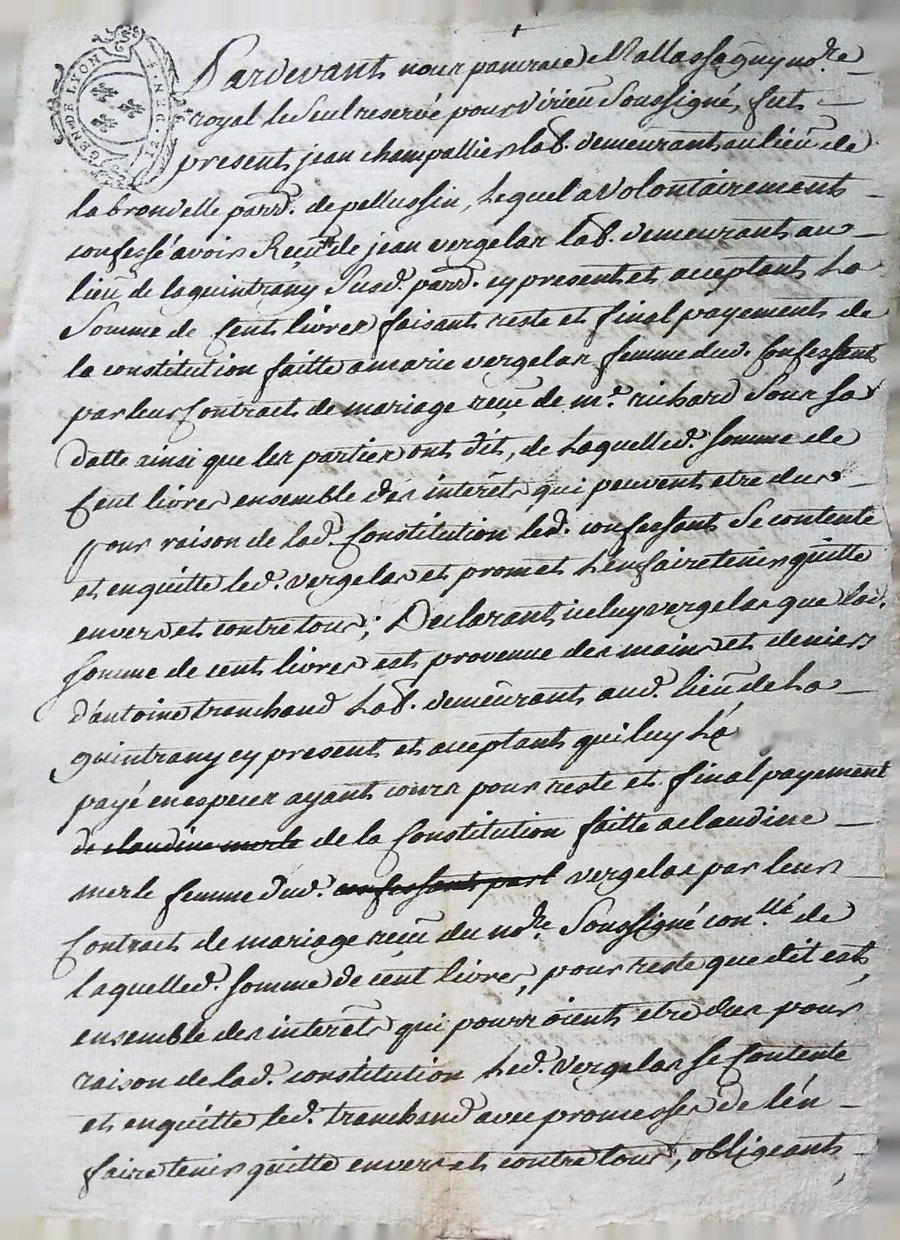 GEN. DE LYON
2. DEN. ET
Pardevant nous pancrace Mallassagny no.re
royal le seul reservé pour Virieu soussigné, fut
present jean champallier lab.r demeurant au lieu de
la brondelle parr.e de pellussin, lequel a volontairement
confessé avoir reçu de jean vergelas lab.r demeurant au
lieu de laguintrany susd. parr.e cy present et aceptant la
somme de cent livres faisant reste et final payement de
la constitution faitte a marie vergelas femme dud. confessant
par leur contract de mariage reçu de m.e richard sous sa
datte ainsi que les parties ont dit, de laquelle d. somme de
cent livres ensemble des interêts qui peuvent etre dus
pour raison de lad. constitution led. confessant se contente
et en quitte led. vergelas et promet l'en faire tenir quitte
envers et contre tous; Declarant iceluy vergelas que lad.
somme de cent livres est provenue des mains et deniers
d'antoine tranchand lab.r demeurant aud. lieu de la
guintrany cy present et aceptant qui luy l'a
payé en especes ayant cours pour reste et final payement
de claudine merle de la constitution faitte a claudine
merle femme dud. confessant par l vergelas par leur
contract de mariage reçu du no.re soussigné con.llé de
laquelle d. somme de cent livres, pour reste que dit est,
ensemble des interêts qui pourroient etre dus pour
raison de lad. constitution led. vergelas se contente
et en quitte led. tranchand avec promesses de l'en
faire tenir quitte envers et contre tous, obligeant,